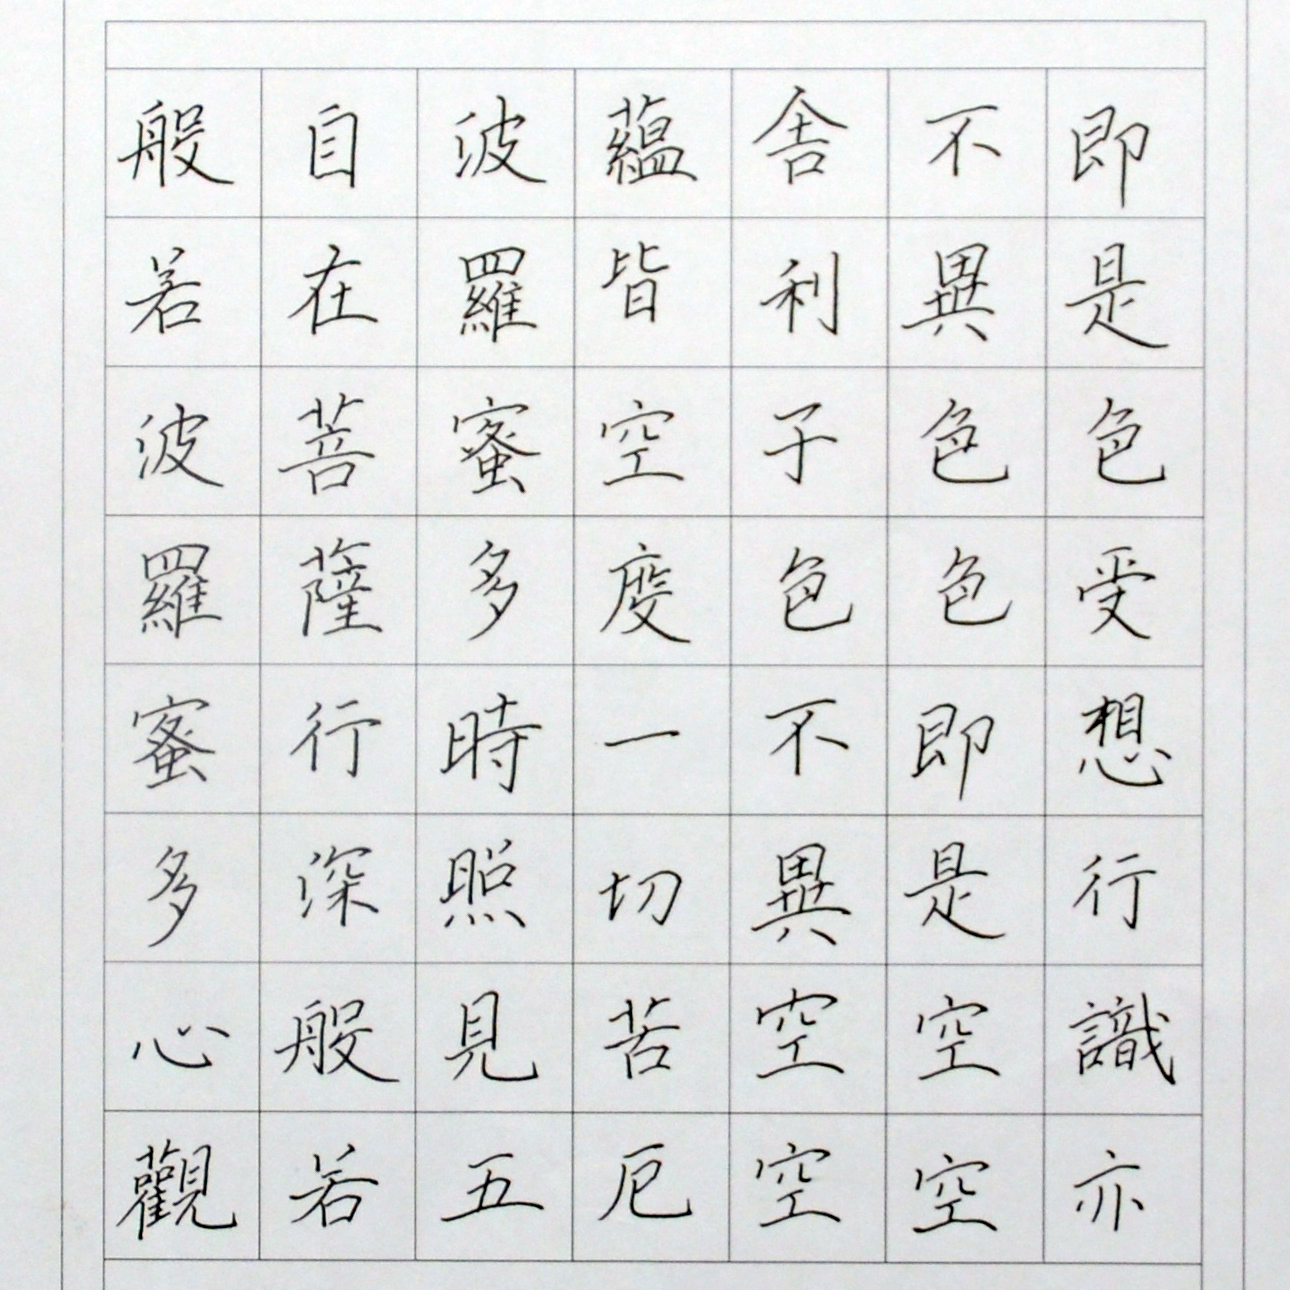 般若波羅蜜多心觀
自在菩薩行深般若
波羅蜜多時照見五
蘊皆空度一切苦厄
舍利子色不異空空
不異色色即是空空
即是色受想行識亦